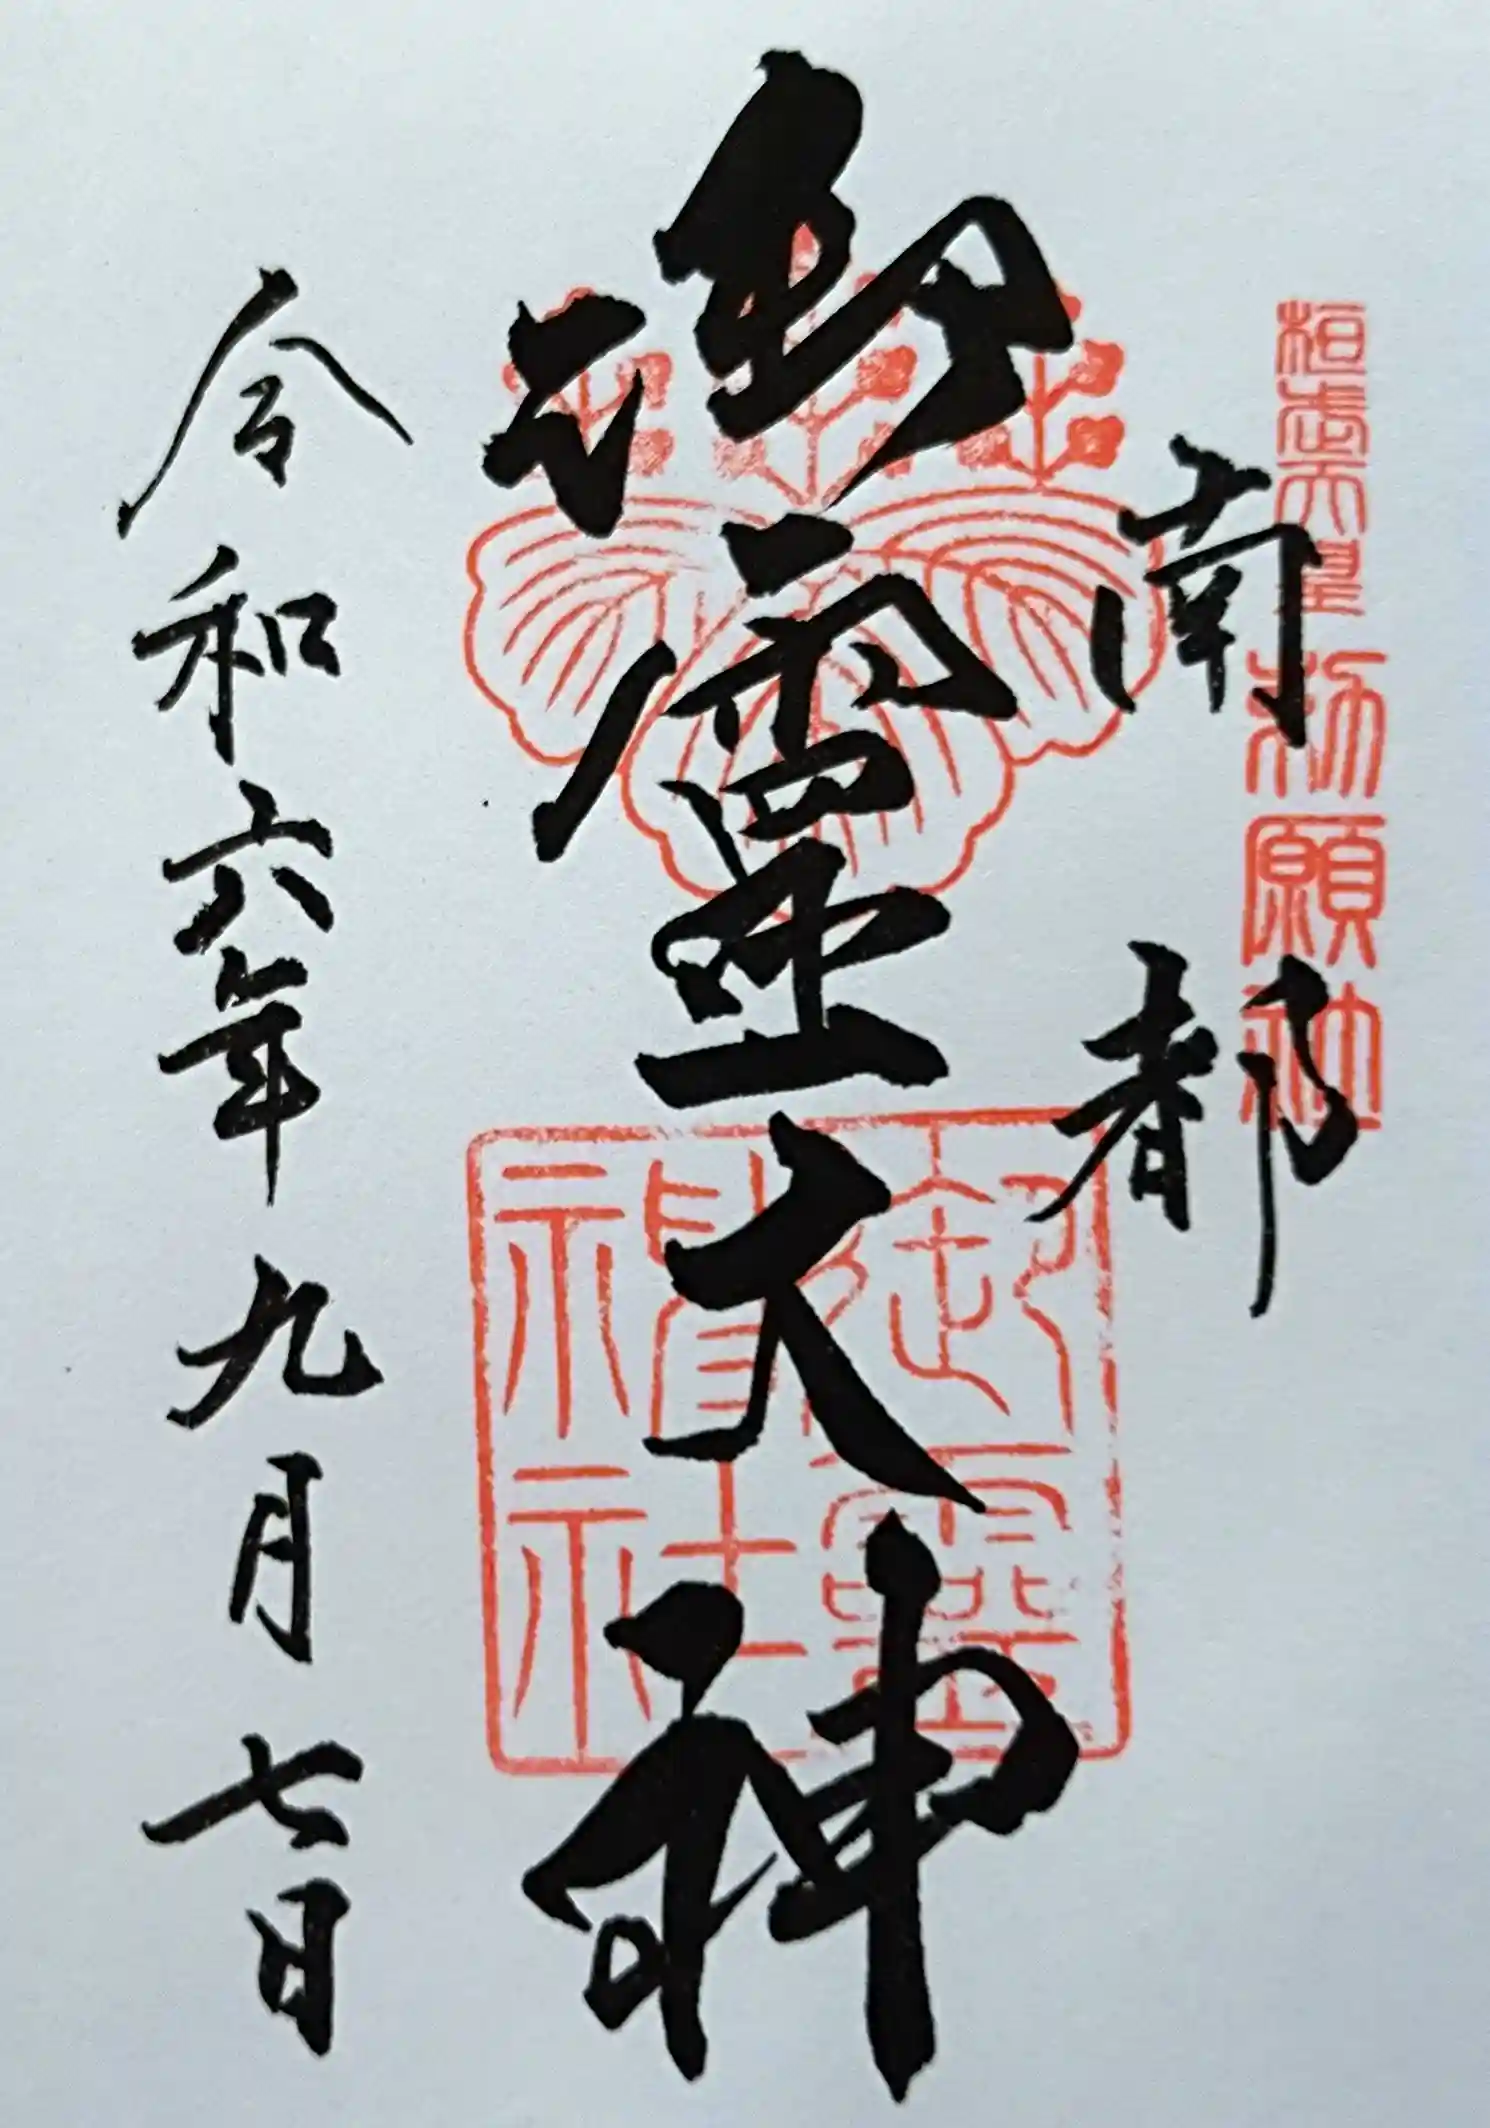 桓武天皇勅願社
南都
御霊大神
御靈
神社
令和六年九月七日